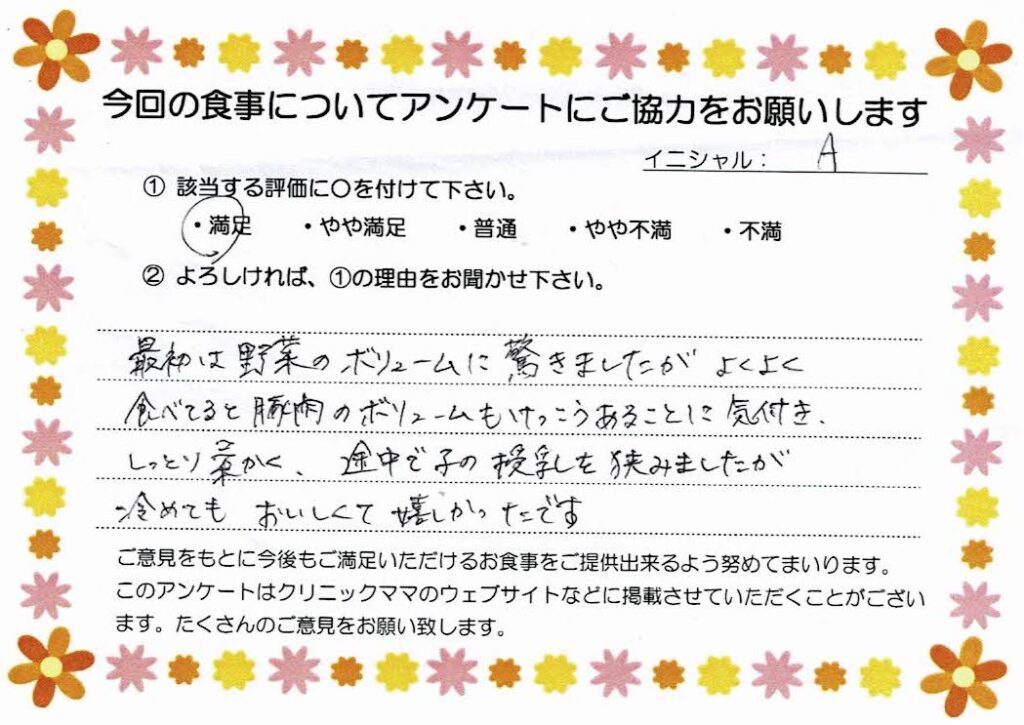 今回の食事についてアンケートにご協力をお願いします
イニシャル： A
① 該当する評価に○を付けて下さい。
・満足 ・やや満足 ・普通 ・やや不満 ・不満
② よろしければ、①の理由をお聞かせ下さい。
最初は野菜のボリュームに驚きましたが よくよく
食べてると豚肉のボリュームもけっこうあることに気付き、
しっとり柔かく、途中で子の授乳を狭みましたが
冷めても おいしくて 嬉しかったです
ご意見をもとに今後もご満足いただけるお食事をご提供出来るよう努めてまいります。
このアンケートはクリニックママのウェブサイトなどに掲載させていただくことがござい
ます。たくさんのご意見をお願い致します。